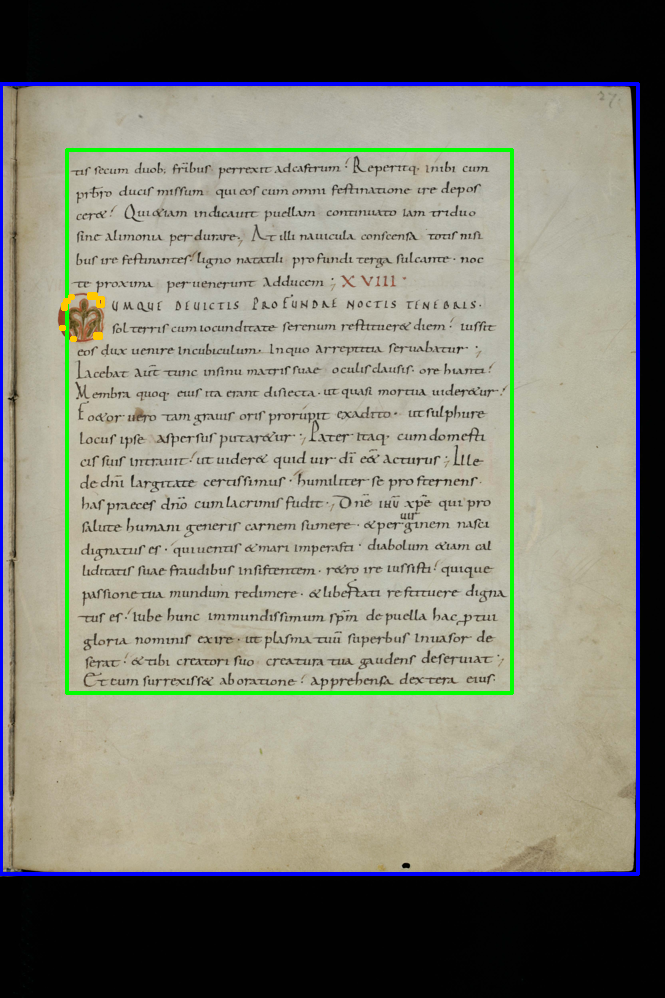 27.
tis secum duob; fr̄ibus perrexit ad castrum! Reperitq· inibi cum
pr̄bro ducis missum qui eos cum omni festinatione ire depos
cer&! Qui &iam indicauit puellam continuato iam triduo
sine alimonia perdurare; At illi nauicula conscensa totis nisi
bus ire festinantes! ligno natatili profundi terga sulcante· noc
te proxima peruenerunt Adducem; XVIII·
UMQUE DEUICTIS PROFUNDAE NOCTIS TENEBRIS·
sol terris cum iocunditate serenum restituer& diem! iussit
eos dux uenire Incubiculum· Inquo arreptitia seruabatur;
Iacebat aut̄ tunc insinu matris suae oculis clausis· ore hianti!
Membra quoq· eius ita erant disiecta· ut quasi mortua uider&ur!
Fo&or uero tam grauis oris prorupit exadito· ut sulphure
Locus ipse aspersus putar&ur; Pater itaq· cum domesti
cis suis intrauit! ut uider& quid uir dī eēt acturus; Ille
de dn̄i largitate certissimus· humiliter se prosternens·
has praeces dn̄o cum lacrimis fudit; Dn̄e ihū xpē qui pro
salute humani generis carnem sumere· & per uirginem nasci
dignatus es· qui uentis & mari imperasti· diabolum &iam cal
liditatis suae fraudibus insistentem· r&ro ire iussisti! quique
passione tua mundum redimere· & libertati restituere digna
tus es! Iube hunc immundissimum sp̄m de puella hac ꝓ tui
gloria nominis exire· ut plasma tuū superbus Inuasor de
serat! & tibi creatori suo creatura tua gaudens deseruiat;
Et cum surrexiss& ab oratione! apprehensa dextera eius·